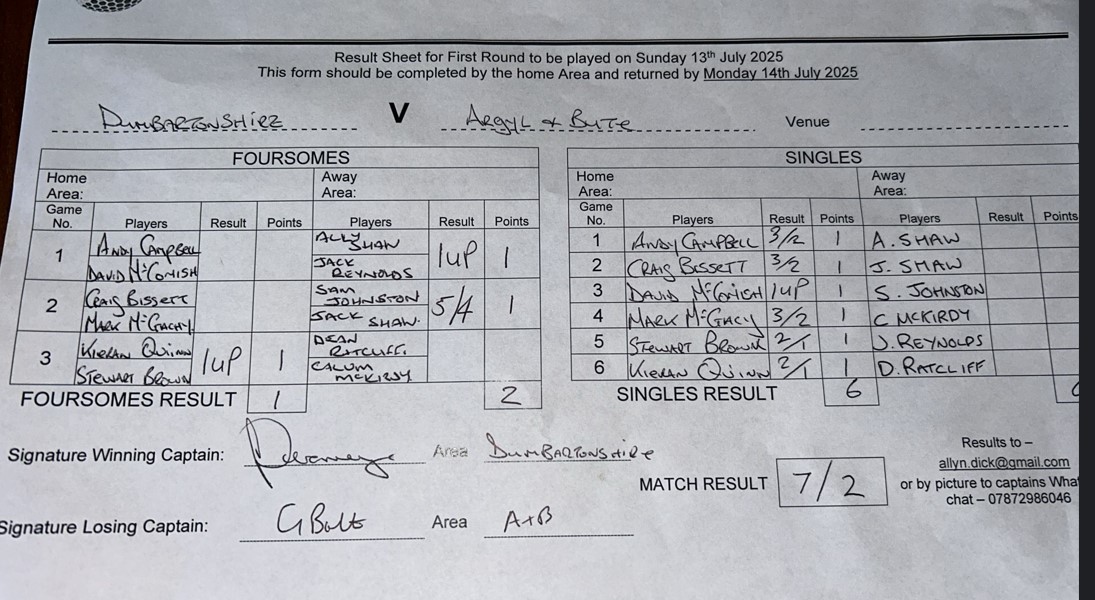 Result Sheet for First Round to be played on Sunday 13th July 2025
This form should be completed by the home Area and returned by Monday 14th July 2025
DUMBARTONSHIRE V Argyl + Bute Venue
FOURSOMES
Home Area: Away Area:
Game No. Players Result Points Players Result Points
1 ANDY CAMPBELL DAVID McCONISH ALLY SHAW JACK REYNOLDS 1UP 1
2 CRAIG BISSETT MARK McGACHY SAM JOHNSTON JACK SHAW. 5/4 1
3 KIERAN QUINN STEWART BROWN 1UP 1 DEAN RATCLIFF. CALUM McKIRDY
FOURSOMES RESULT 1 2
SINGLES
Home Area: Away Area:
Game No. Players Result Points Players Result Points
1 ANDY CAMPBELL 3/2 1 A. SHAW
2 CRAIG BISSETT 3/2 1 J. SHAW
3 DAVID McCONISH 1UP 1 S. JOHNSTON
4 MARK McGACY 3/2 1 C MCKIRDY
5 STEWART BROWN 2/1 1 J. REYNOLDS
6 KIERAN QUINN 2/1 1 D. RATCLIFF
SINGLES RESULT 6
Signature Winning Captain: Area DUMBARTONSHIRE
Signature Losing Captain: Area A+B
MATCH RESULT 7/2
Results to –
allyn.dick@gmail.com
or by picture to captains Wha
chat – 07872986046